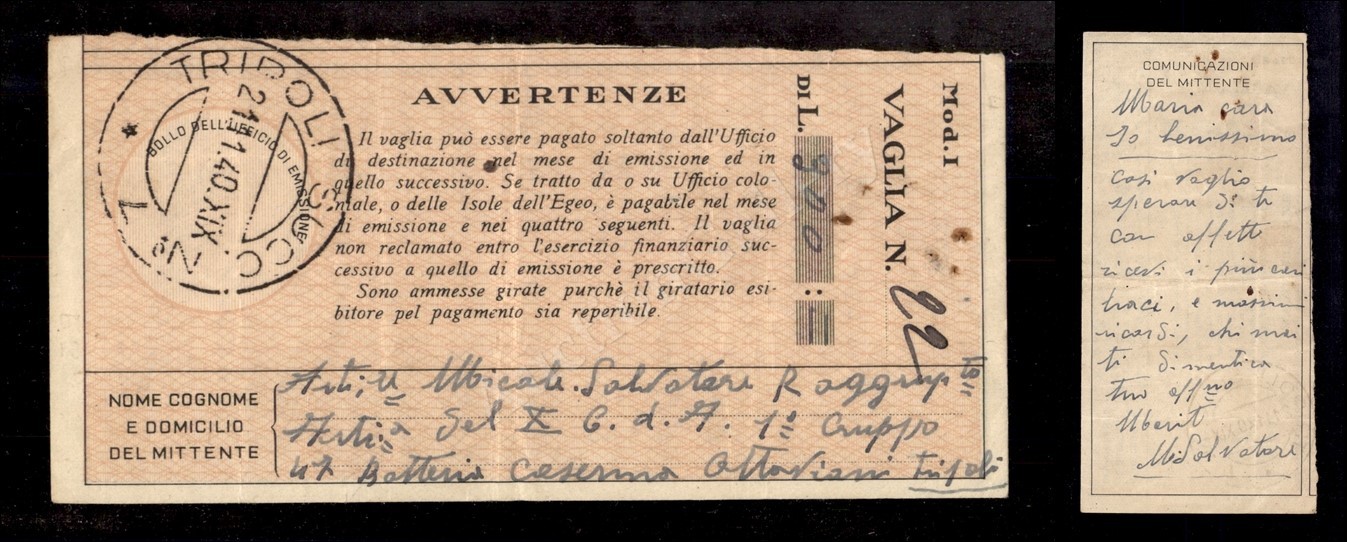 TRIPOLI
SUCC. Nº 1
21.11.40.XIX
BOLLO DELL'UFFICIO DI EMISSIONE
AVVERTENZE
Il vaglia può essere pagato soltanto dall'Ufficio
di destinazione nel mese di emissione ed in
quello successivo. Se tratto da o su Ufficio colo-
niale, o delle Isole dell'Egeo, è pagabile nel mese
di emissione e nei quattro seguenti. Il vaglia
non reclamato entro l'esercizio finanziario suc-
cessivo a quello di emissione è prescritto.
Sono ammesse girate purchè il giratario esi-
bitore pel pagamento sia reperibile.
DI L.
VAGLIA N. 22
Mod. I
NOME COGNOME
E DOMICILIO
DEL MITTENTE
Salvatore Raggrup.to
del X C. d. A. 1º Gruppo
47 Batteria Caserma Ottaviani Tripoli
COMUNICAZIONI
DEL MITTENTE
Maria cara
Io benissimo
così voglio
sperare di te
con affetto
ricevi i più cari
baci, e
ricordi, chi mai
ti dimentica
tuo aff.mo
Marito
Salvatore